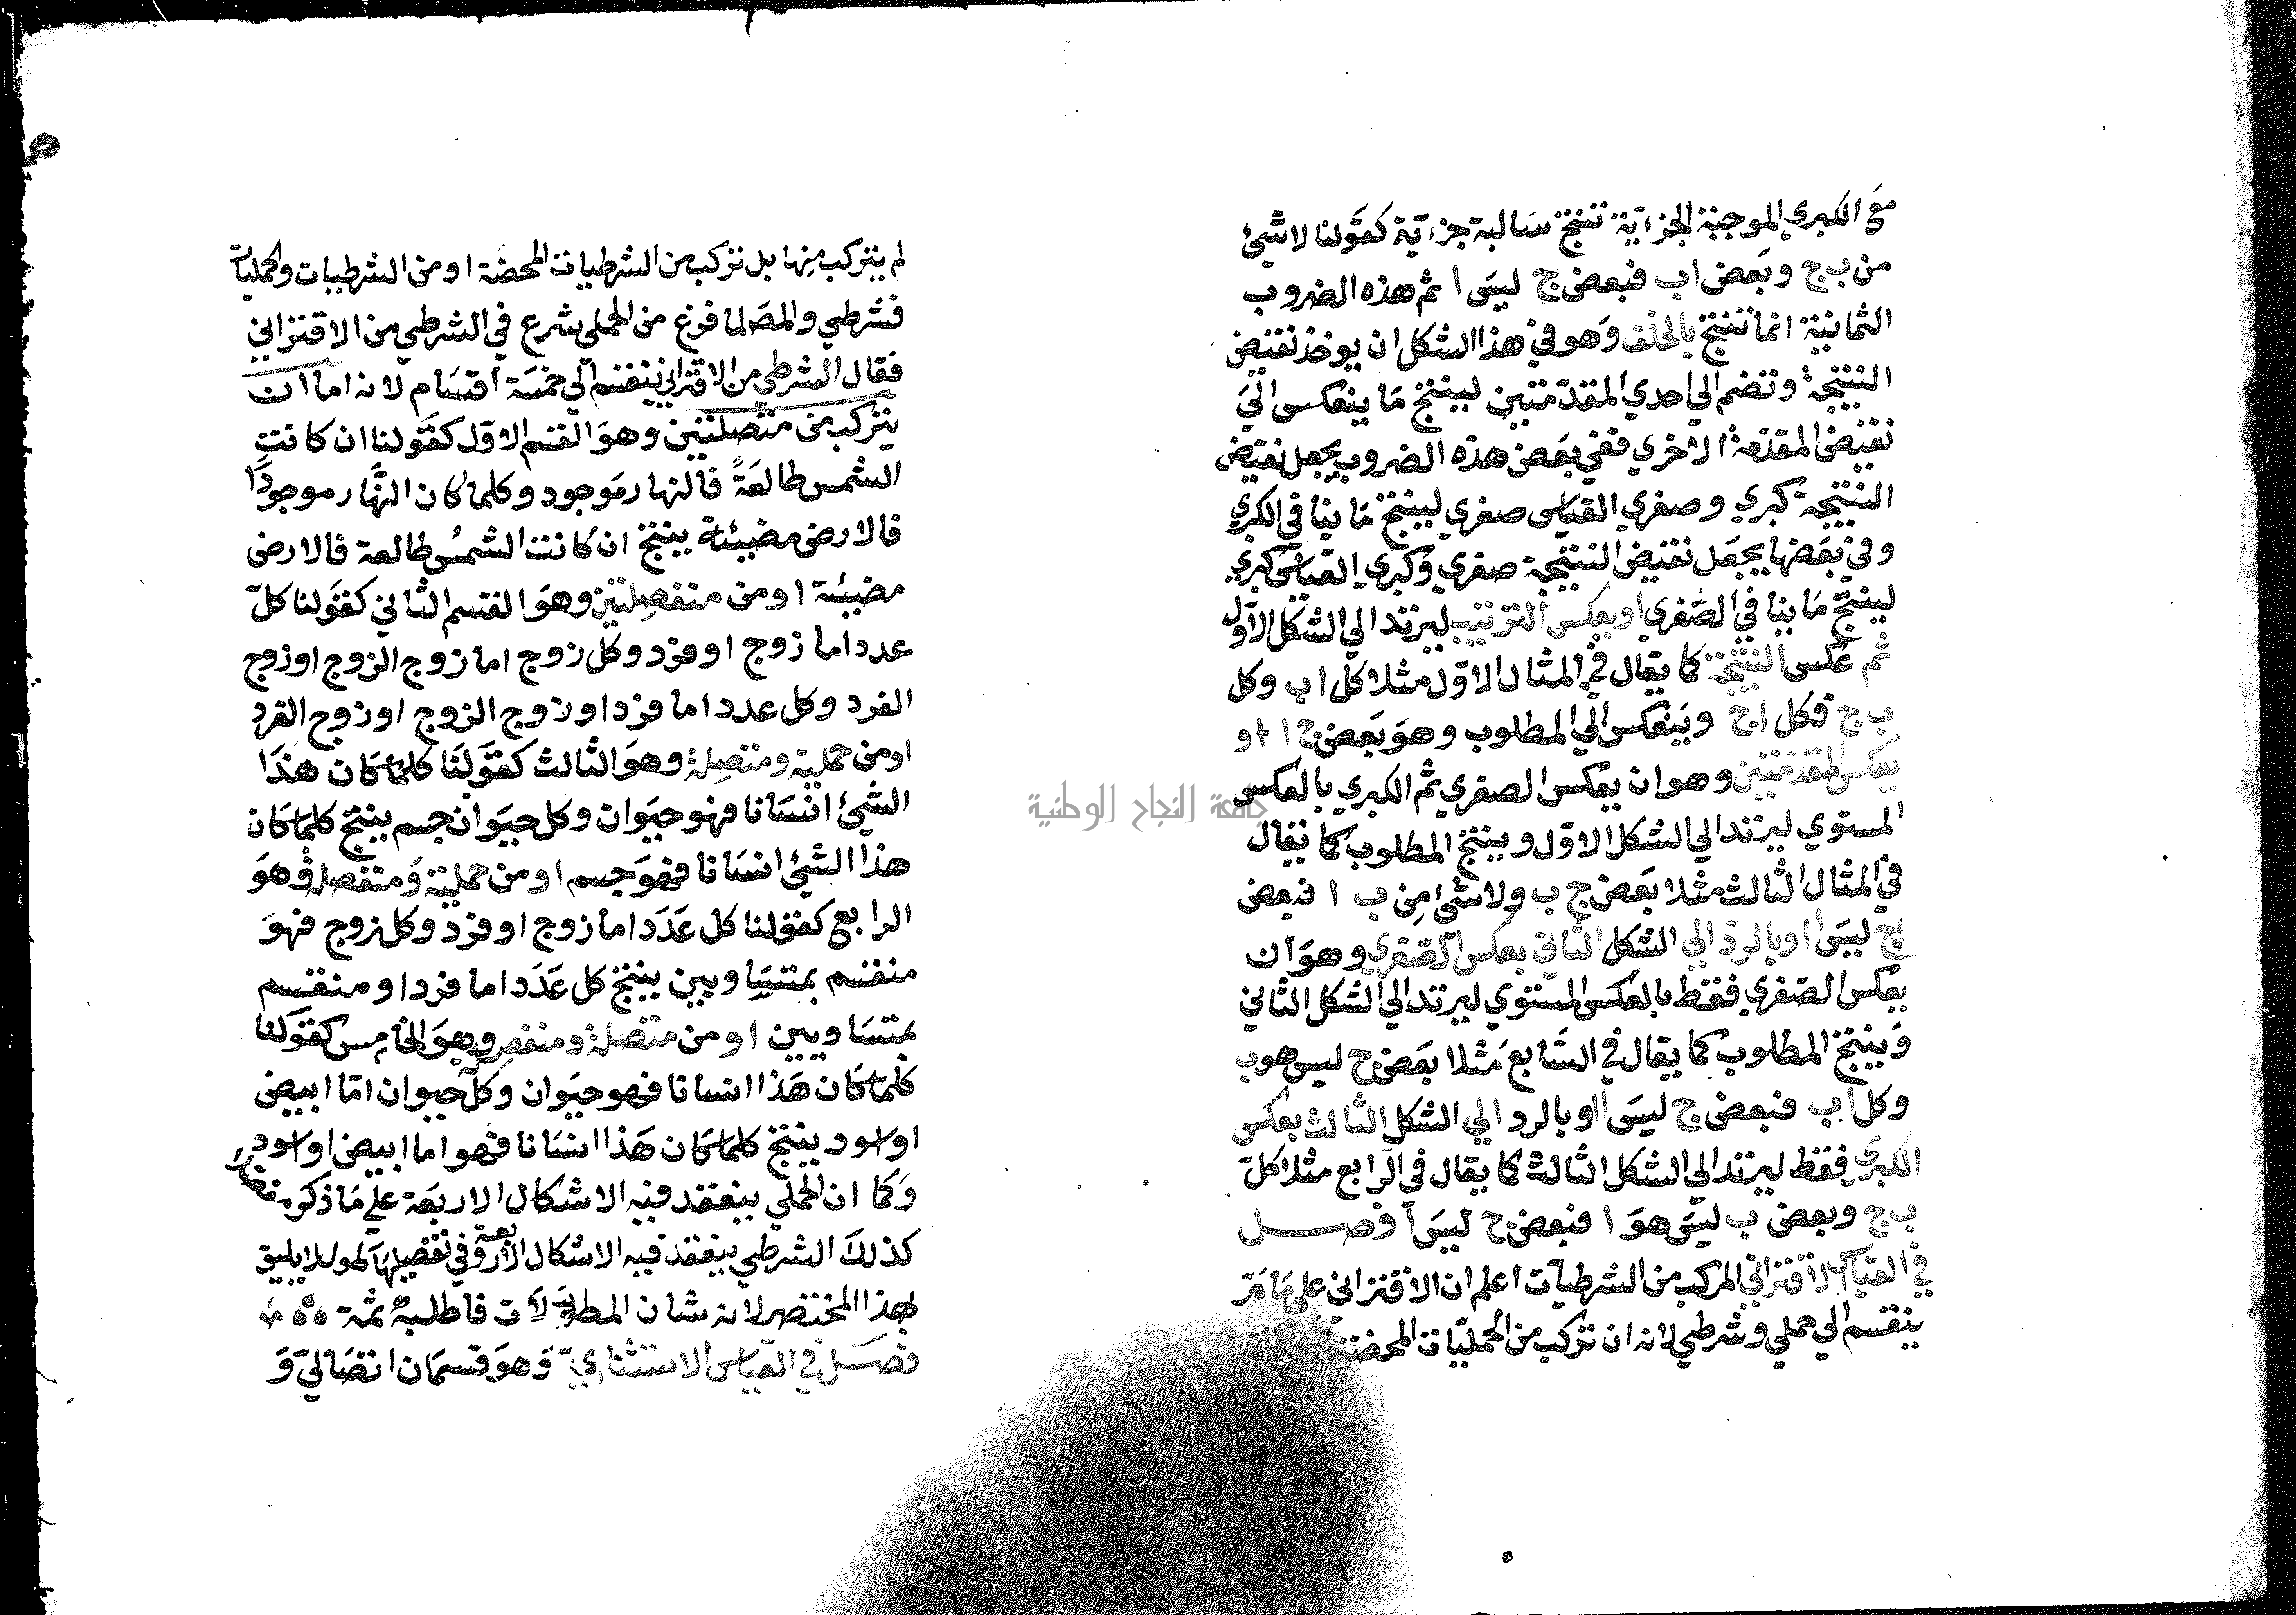 مع الكبري الموجبة الجزءية تنتج سالبة جزءية كقولنا لا شئ
من ب ج وبعض ا ب فبعض ج ليس ا ثم هذه الضروب
الثمانية انما تنتج بالخلف وهو في هذا الشكل ان يوخذ نقيض
النتيجة وتضم الي احدي المقدمتين لينتج ما ينعكس الي
نقيض المقدمة الاخري ففي بعض هذه الضروب يجعل نقيض
النتيجة كبري وصغري القياس صغري لينتج ما ينافي الكبري
وفي بعضها يجعل نقيض النتيجة صغري وكبري القياس كبري
لينتج ما ينافي الصغري او بعكس الترتيب ليرتد الي الشكل الاول
ثم عكس النتيجة كما يقال في المثال الاول مثلا كل ا ب وكل
ب ج فكل ا ج وينعكس الي المطلوب وهو بعض ج ا او
بعكس المقدمتين وهو ان يعكس الصغري ثم الكبري بالعكس
المستوي ليرتد الي الشكل الاول وينتج المطلوب كما يقال
في المثال الثالث مثلا بعض ج ب ولا شئ من ب ا فبعض
ج ليس ا او بالرد الي الشكل الثاني بعكس الصغري وهو ان
يعكس الصغري فقط بالعكس المستوي ليرتد الي الشكل الثاني
وينتج المطلوب كما يقال في السابع مثلا بعض ج ليس هو ب
وكل ا ب فبعض ج ليس ا او بالرد الي الشكل الثالث بعكس
الكبري فقط ليرتد الي الشكل الثالث كما يقال في الرابع مثلا كل
ب ج وبعض ب ليس هو ا فبعض ج ليس ا فصل
في القياس الاقتراني المركب من الشرطيات اعلم ان الاقتراني علي ما مر
ينقسم الي حملي وشرطي لانه ان تركب من الحمليات المحضة فحملي وان
لم يتركب منها بل تركب من الشرطيات المحضة او من الشرطيات والحمليات
فشرطي والمص لما فرغ من الحملي شرع في الشرطي من الاقتراني
فقال الشرطي من الاقتراني ينقسم الي خمسة اقسام لانه اما ان
يتركب من متصلتين وهو القسم الاول كقولنا ان كانت
الشمس طالعة فالنهار موجود وكلما كان النهار موجودا
فالارض مضيئة ينتج ان كانت الشمس طالعة فالارض
مضيئة او من منفصلتين وهو القسم الثاني كقولنا كل
عدد اما زوج او فرد وكل زوج اما زوج الزوج او زوج
الفرد وكل عدد اما فرد او زوج الزوج او زوج الفرد
او من حملية ومتصلة وهو الثالث كقولنا كلما كان هذا
الشئ انسانا فهو حيوان وكل حيوان جسم ينتج كلما كان
هذا الشئ انسانا فهو جسم او من حملية ومنفصلة وهو
الرابع كقولنا كل عدد اما زوج او فرد وكل زوج فهو
منقسم بمتساويين ينتج كل عدد اما فرد او منقسم
بمتساويين او من متصلة ومنفصلة وهو الخامس كقولنا
كلما كان هذا انسانا فهو حيوان وكل حيوان اما ابيض
او اسود ينتج كلما كان هذا انسانا فهو اما ابيض او اسود
وكما ان الحملي ينعقد فيه الاشكال الاربعة علي ما ذكره
كذلك الشرطي ينعقد فيه الاشكال الاربعة وفي تفصيلها طول لا يليق
بهذا المختصر لانه شان المطولات فاطلبه ثمة
فصل في القياس الاستثناءي وهو قسمان اتصالي و
جامعة النجاح الوطنية